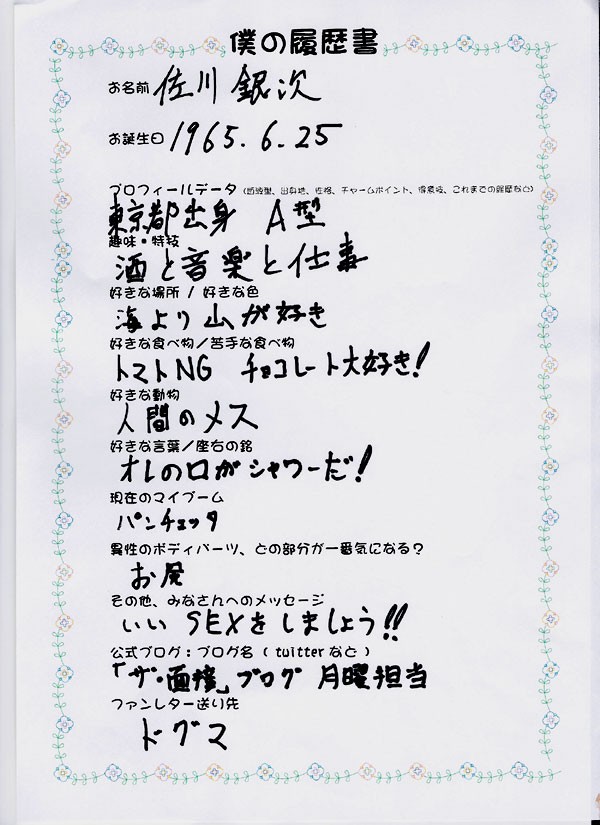 僕の履歴書
お名前 佐川 銀次
お誕生日 1965.6.25
プロフィールデータ（血液型、出身地、性格、チャームポイント、得意技、これまでの経歴など）
東京都出身 A型
趣味・特技
酒と音楽と仕事
好きな場所 / 好きな色
海より山が好き
好きな食べ物／苦手な食べ物
トマトNG チョコレート大好き!
好きな動物
人間のメス
好きな言葉／座右の銘
オレの口がシャワーだ!
現在のマイブーム
パンチェッタ
異性のボディパーツ、どの部分が一番気になる？
お尻
その他、みなさんへのメッセージ
いいSEXをしましょう!!
公式ブログ：ブログ名（twitterなど）
「ザ・面接」ブログ 月曜担当
ファンレター送り先
ドグマ